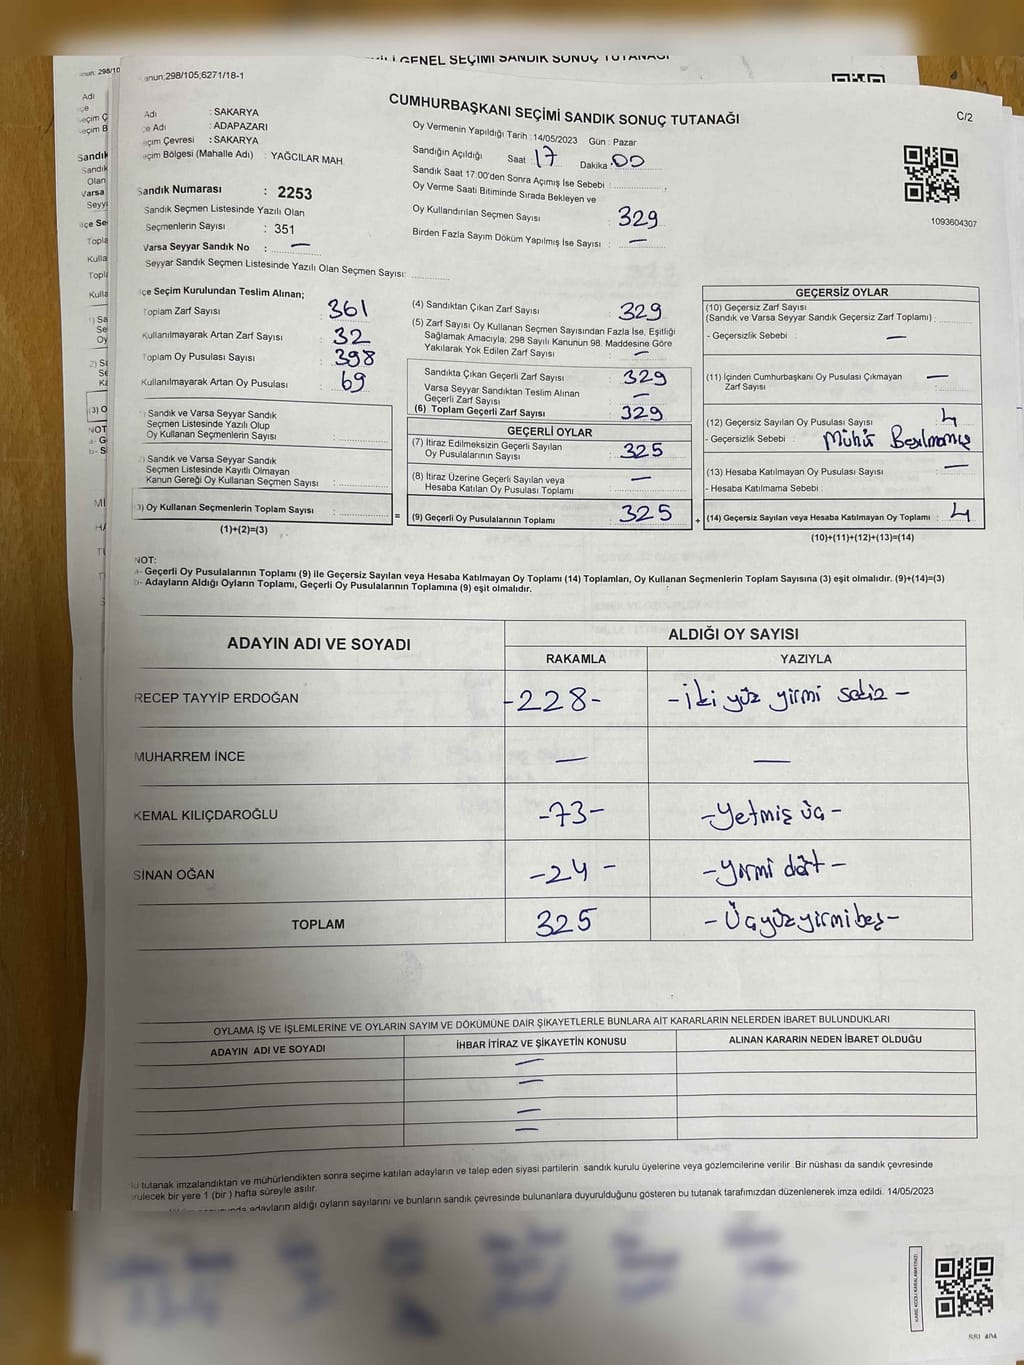 GENEL SEÇİMİ SANDIK SONUÇ TUTANAĞI
298/105;6271/18-1
CUMHURBAŞKANI SEÇİMİ SANDIK SONUÇ TUTANAĞI
C/2
Adı : SAKARYA
Adı : ADAPAZARI
Çevresi : SAKARYA
Bölgesi (Mahalle Adı) : YAĞCILAR MAH.
Oy Vermenin Yapıldığı Tarih : 14/05/2023 Gün : Pazar
Sandığın Açıldığı Saat : 17 Dakika : 00
Sandık Saat 17:00'den Sonra Açımış İse Sebebi :
Oy Verme Saati Bitiminde Sırada Bekleyen ve
Oy Kullandırılan Seçmen Sayısı : 329
Birden Fazla Sayım Döküm Yapılmış İse Sayısı : —
1093604307
Sandık Numarası : 2253
Sandık Seçmen Listesinde Yazılı Olan
Seçmenlerin Sayısı : 351
Varsa Seyyar Sandık No : —
Seyyar Sandık Seçmen Listesinde Yazılı Olan Seçmen Sayısı:
İlçe Seçim Kurulundan Teslim Alınan;
Toplam Zarf Sayısı : 361
Kullanılmayarak Artan Zarf Sayısı : 32
Toplam Oy Pusulası Sayısı : 398
Kullanılmayarak Artan Oy Pusulası : 69
Sandık ve Varsa Seyyar Sandık
Seçmen Listesinde Yazılı Olup
Oy Kullanan Seçmenlerin Sayısı :
Sandık ve Varsa Seyyar Sandık
Seçmen Listesinde Kayıtlı Olmayan
Kanun Gereği Oy Kullanan Seçmen Sayısı :
3) Oy Kullanan Seçmenlerin Toplam Sayısı :
(1)+(2)=(3)
=
(4) Sandıktan Çıkan Zarf Sayısı : 329
(5) Zarf Sayısı Oy Kullanan Seçmen Sayısından Fazla İse, Eşitliği
Sağlamak Amacıyla; 298 Sayılı Kanunun 98. Maddesine Göre
Yakılarak Yok Edilen Zarf Sayısı : —
Sandıkta Çıkan Geçerli Zarf Sayısı : 329
Varsa Seyyar Sandıktan Teslim Alınan
Geçerli Zarf Sayısı : —
(6) Toplam Geçerli Zarf Sayısı : 329
GEÇERLİ OYLAR
(7) İtiraz Edilmeksizin Geçerli Sayılan
Oy Pusulalarının Sayısı : 325
(8) İtiraz Üzerine Geçerli Sayılan veya
Hesaba Katılan Oy Pusulası Toplamı : —
(9) Geçerli Oy Pusulalarının Toplamı : 325
+
GEÇERSİZ OYLAR
(10) Geçersiz Zarf Sayısı
(Sandık ve Varsa Seyyar Sandık Geçersiz Zarf Toplamı) :
- Geçersizlik Sebebi : —
(11) İçinden Cumhurbaşkanı Oy Pusulası Çıkmayan
Zarf Sayısı : —
(12) Geçersiz Sayılan Oy Pusulası Sayısı : 4
- Geçersizlik Sebebi : Mühür Basılmamış
(13) Hesaba Katılmayan Oy Pusulası Sayısı : —
- Hesaba Katılmama Sebebi :
(14) Geçersiz Sayılan veya Hesaba Katılmayan Oy Toplamı : 4
(10)+(11)+(12)+(13)=(14)
NOT:
a- Geçerli Oy Pusulalarının Toplamı (9) ile Geçersiz Sayılan veya Hesaba Katılmayan Oy Toplamı (14) Toplamları, Oy Kullanan Seçmenlerin Toplam Sayısına (3) eşit olmalıdır. (9)+(14)=(3)
b- Adayların Aldığı Oyların Toplamı, Geçerli Oy Pusulalarının Toplamına (9) eşit olmalıdır.
ADAYIN ADI VE SOYADI
ALDIĞI OY SAYISI
RAKAMLA YAZIYLA
RECEP TAYYİP ERDOĞAN -228- -iki yüz yirmi sekiz-
MUHARREM İNCE — —
KEMAL KILIÇDAROĞLU -73- -Yetmiş üç-
SİNAN OĞAN -24- -yirmi dört-
TOPLAM 325 -Üçyüzyirmibeş-
OYLAMA İŞ VE İŞLEMLERİNE VE OYLARIN SAYIM VE DÖKÜMÜNE DAİR ŞİKAYETLERLE BUNLARA AİT KARARLARIN NELERDEN İBARET BULUNDUKLARI
ADAYIN ADI VE SOYADI İHBAR İTİRAZ VE ŞİKAYETİN KONUSU ALINAN KARARIN NEDEN İBARET OLDUĞU
—
—
—
—
tutanak imzalandıktan ve mühürlendikten sonra seçime katılan adayların ve talep eden siyasi partilerin sandık kurulu üyelerine veya gözlemcilerine verilir .Bir nüshası da sandık çevresinde
bir yere 1 (bir ) hafta süreyle asılır.
adayların aldığı oyların sayılarını ve bunların sandık çevresinde bulunanlara duyurulduğunu gösteren bu tutanak tarafımızdan düzenlenerek imza edildi. 14/05/2023